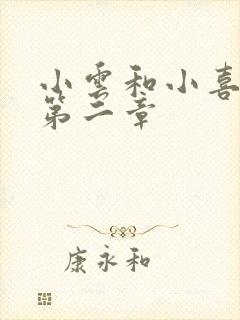 小雲和小喜
第二章
康永和